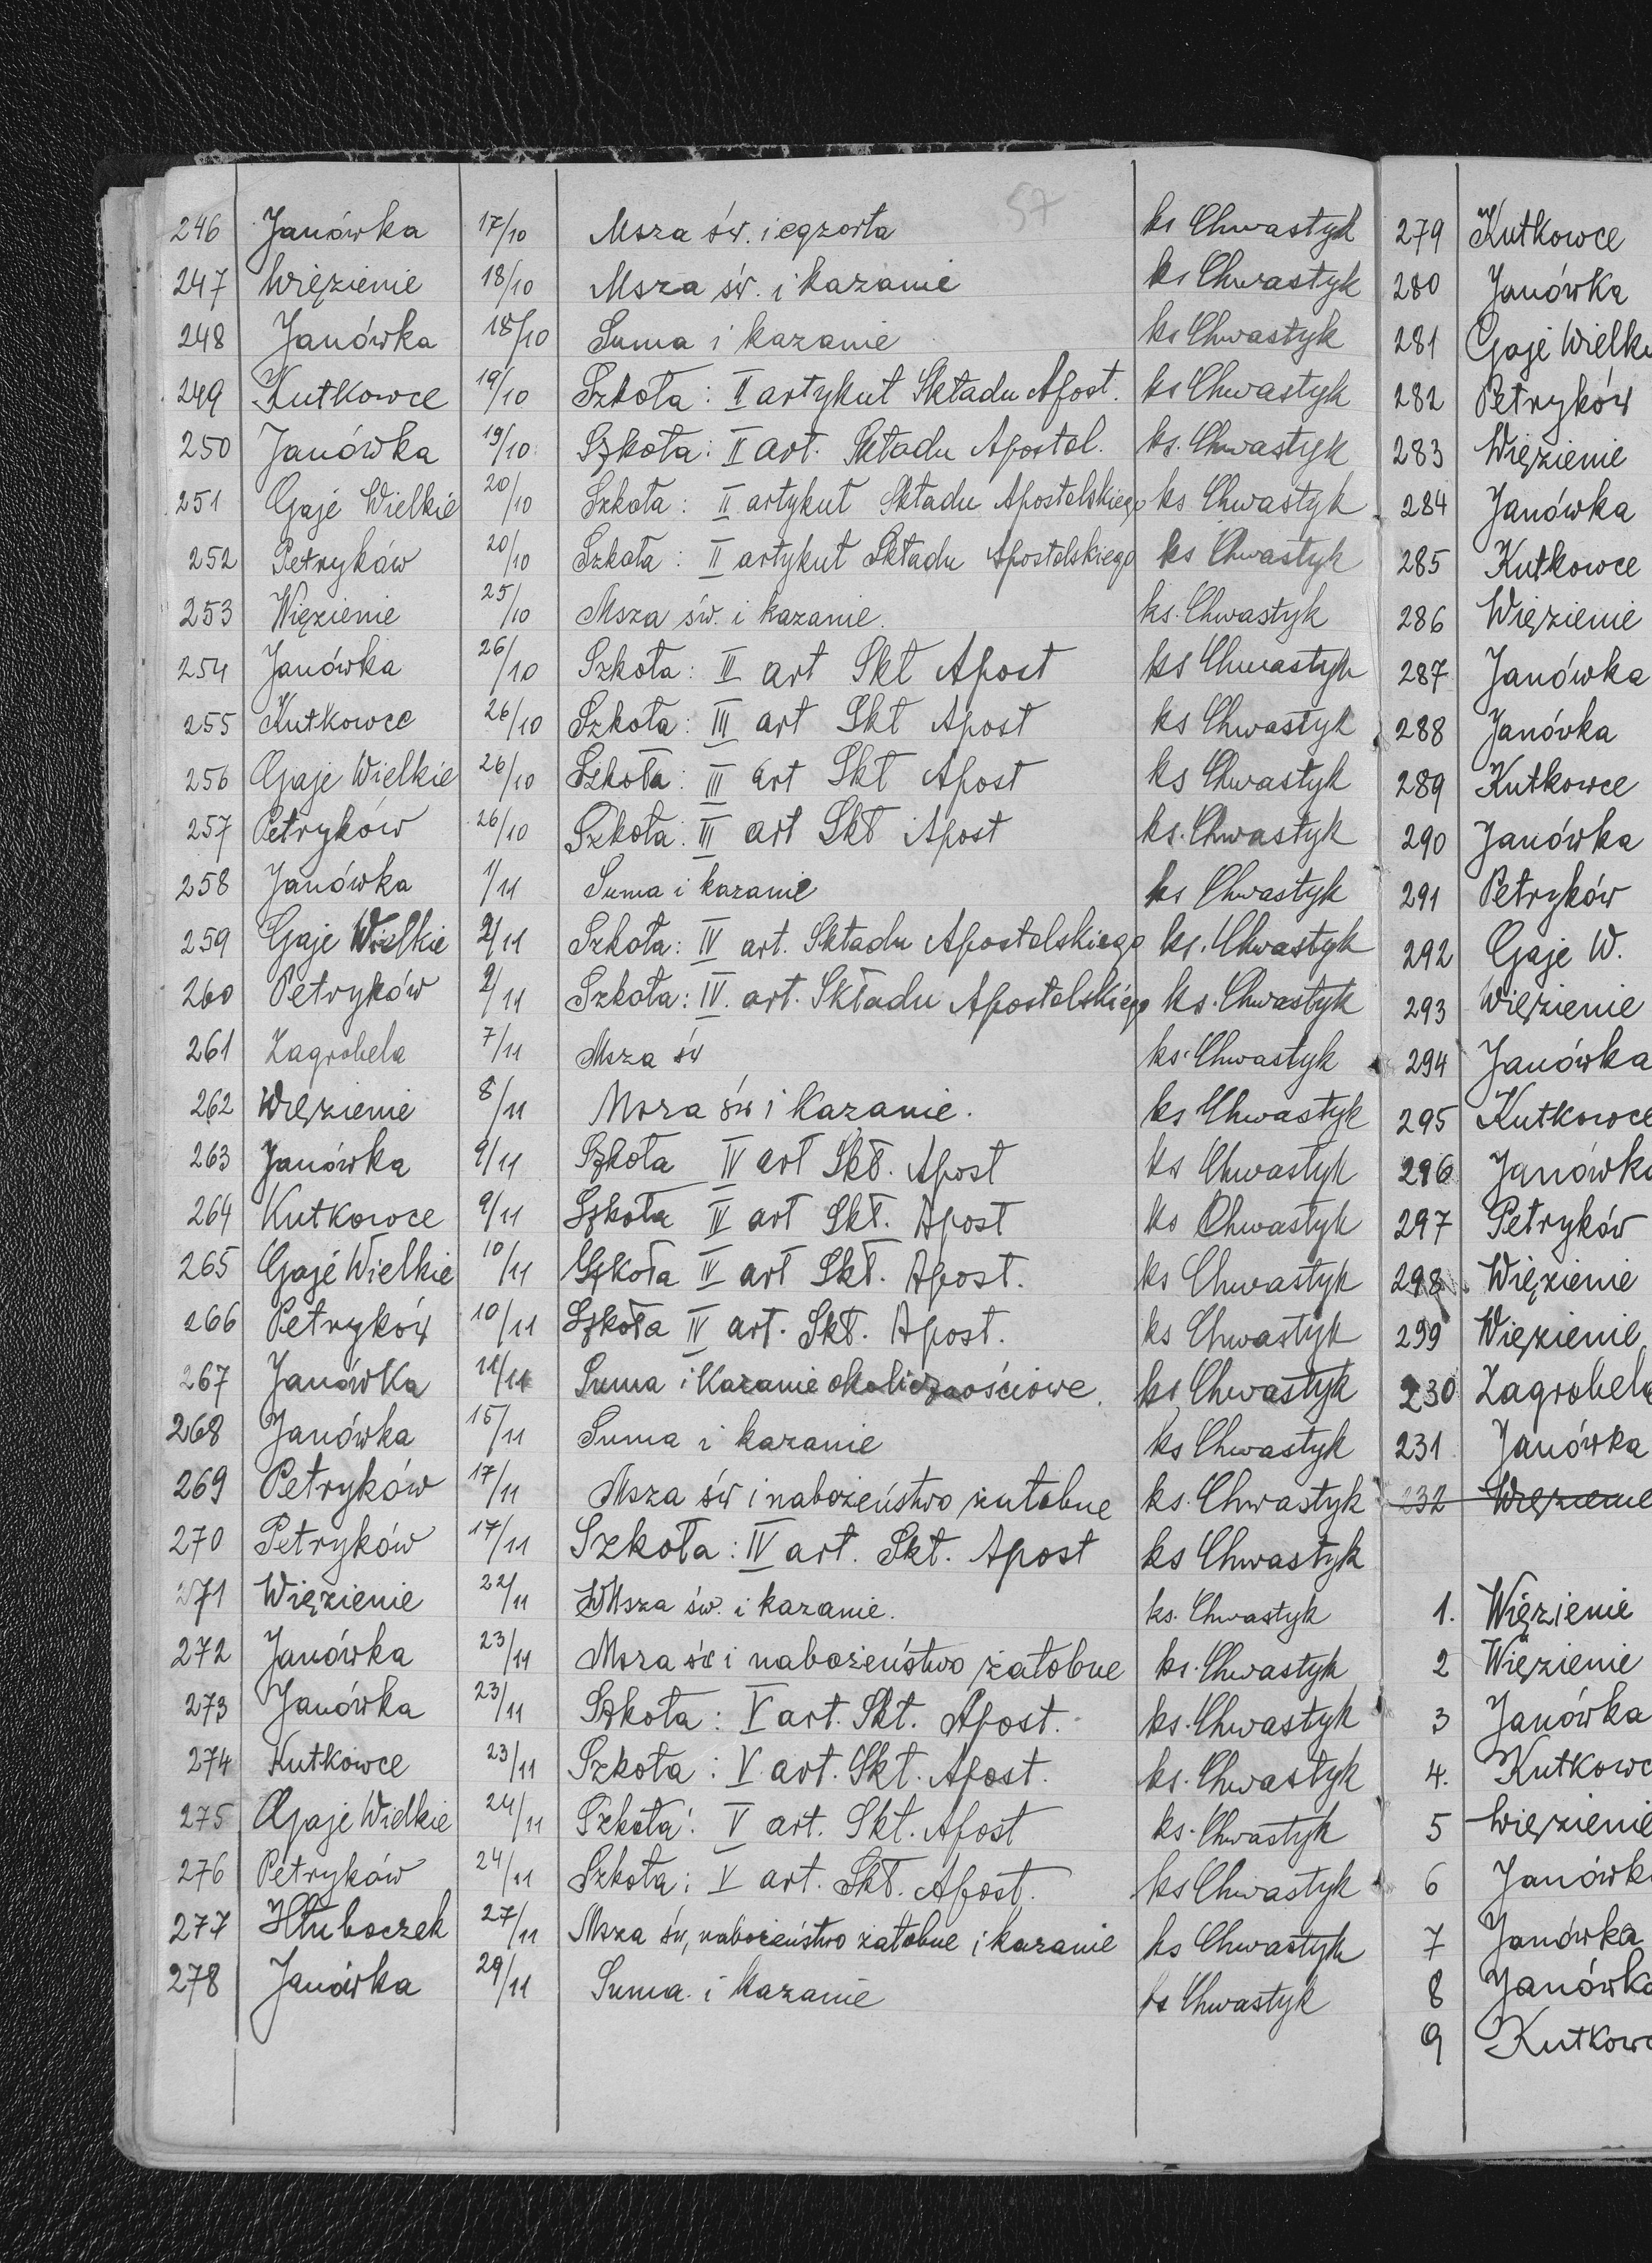 57
246 Janówka 17/10 Msza św. i egzorta ks Chwastyk
247 Więzienie 18/10 Msza św. i kazanie ks Chwastyk
248 Janówka 18/10 Suma i kazanie ks Chwastyk
249 Kutkowce 19/10 Szkoła: II artykuł Składu Apost. ks Chwastyk
250 Janówka 19/10 Szkoła: II art. Składu Apostol. ks. Chwastyk
251 Gaje Wielkie 20/10 Szkoła: II artykuł Składu Apostolskiego ks Chwastyk
252 Petryków 20/10 Szkoła: II artykuł Składu Apostolskiego ks Chwastyk
253 Więzienie 25/10 Msza św. i kazanie. ks. Chwastyk
254 Janówka 26/10 Szkoła: II art Skł Apost ks Chwastyk
255 Kutkowce 26/10 Szkoła: III art Skł Apost ks Chwastyk
256 Gaje Wielkie 26/10 Szkoła: III art Skł Apost ks Chwastyk
257 Petryków 26/10 Szkoła: III art Skł Apost ks. Chwastyk
258 Janówka 1/11 Suma i kazanie ks Chwastyk
259 Gaje Wielkie 2/11 Szkoła: IV art. Składu Apostolskiego ks. Chwastyk
260 Petryków 2/11 Szkoła: IV. art. Składu Apostolskiego ks. Chwastyk
261 Zagrobela 7/11 Msza św ks. Chwastyk
262 Więzienie 8/11 Msza św i kazanie. ks Chwastyk
263 Janówka 9/11 Szkoła IV art Skł. Apost ks Chwastyk
264 Kutkowce 9/11 Szkoła IV art Skł. Apost ks Chwastyk
265 Gaje Wielkie 10/11 Szkoła IV art Skł. Apost. ks Chwastyk
266 Petryków 10/11 Szkoła IV art. Skł. Apost. ks Chwastyk
267 Janówka 11/11 Suma i Kazanie okolicznościowe. ks Chwastyk
268 Janówka 15/11 Suma i kazanie ks Chwastyk
269 Petryków 17/11 Msza św i nabożeństwo żałobne ks. Chwastyk
270 Petryków 17/11 Szkoła: IV art. Skł. Apost ks Chwastyk
271 Więzienie 22/11 Msza św. i kazanie. ks. Chwastyk
272 Janówka 23/11 Msza św i nabożeństwo żałobne ks. Chwastyk
273 Janówka 23/11 Szkoła: V art. Skł. Apost. ks. Chwastyk
274 Kutkowce 23/11 Szkoła: V art. Skł. Apost. ks. Chwastyk
275 Gaje Wielkie 24/11 Szkoła: V art. Skł. Apost ks. Chwastyk
276 Petryków 24/11 Szkoła: V art. Skł. Apost. ks Chwastyk
277 Hłuboczek 27/11 Msza św, nabożeństwo żałobne i kazanie ks Chwastyk
278 Janówka 29/11 Suma i kazanie ks Chwastyk
279 Kutkowce
280 Janówka
281 Gaje Wielki
282 Petryków
283 Więzienie
284 Janówka
285 Kutkowce
286 Więzienie
287 Janówka
288 Janówka
289 Kutkowce
290 Janówka
291 Petryków
292 Gaje W.
293 Więzienie
294 Janówka
295 Kutkowce
296 Janówka
297 Petryków
298. Więzienie
299 Więzienie
230 Zagrobela
231 Janówka
232 Więzienie
1. Więzienie
2 Więzienie
3 Janówka
4. Kutkowc
5 Więzienie
6 Janówk
7 Janówka
8 Janówka
9 Kutkow